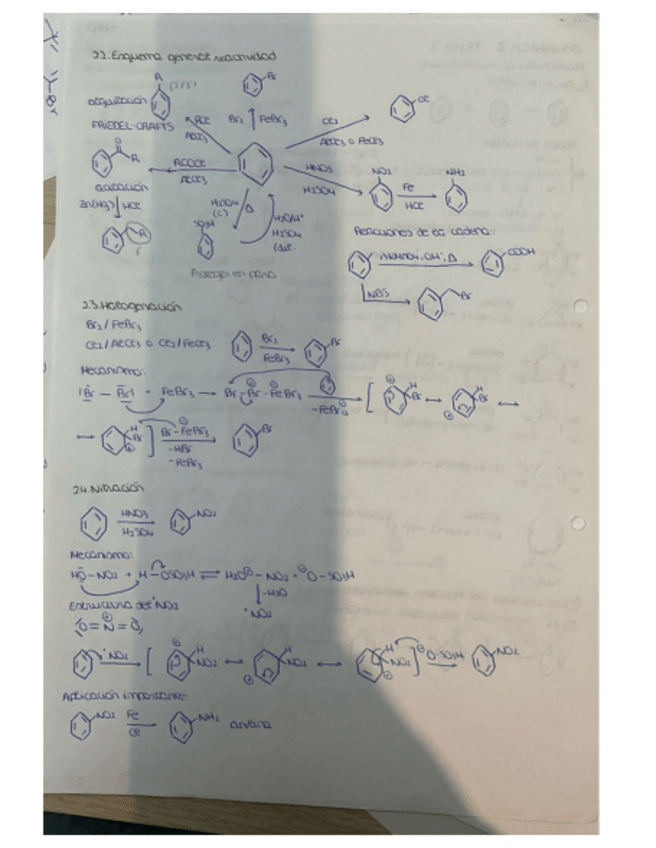 2.2. Esquema general reactividad
alquilación
FRIEDEL-CRAFTS
R
RCl
AlCl3
Br2 | FeBr3
Br
Cl2
AlCl3 o FeCl3
Cl
O
R
RCOCl
AlCl3
HNO3
H2SO4
NO2
Fe
HCl
NH2
acilación
Zn(Hg) HCl
R
H2SO4
(c)
Δ
SO3H
H2SO4
Reacciones de la cadena:
KMnO4, OH⁻, Δ
COOH
NBS
Br
2.3. Halogenación
Br2 / FeBr3
Cl2 / AlCl3 o Cl2 / FeCl3
Br2
FeBr3
Br
Mecanismo:
Br — Br + FeBr3 → Br — Br — FeBr3
H
Br
H
Br
H
Br
Br — FeBr3
-HBr
-FeBr3
Br
2.4. Nitración
HNO3
H2SO4
NO2
Mecanismo:
HO — NO2 + H — OSO3H ⇌ H2O — NO2 + O — SO3H
-H2O
+NO2
Estructura del +NO2
O = N = O
+NO2
H
NO2
H
NO2
H
NO2
O-SO3H
NO2
Aplicación importante:
NO2
Fe
NH2
anilina